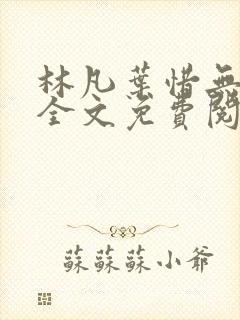 林凡葉惜無
全文免費閱
蘇蘇蘇小爺